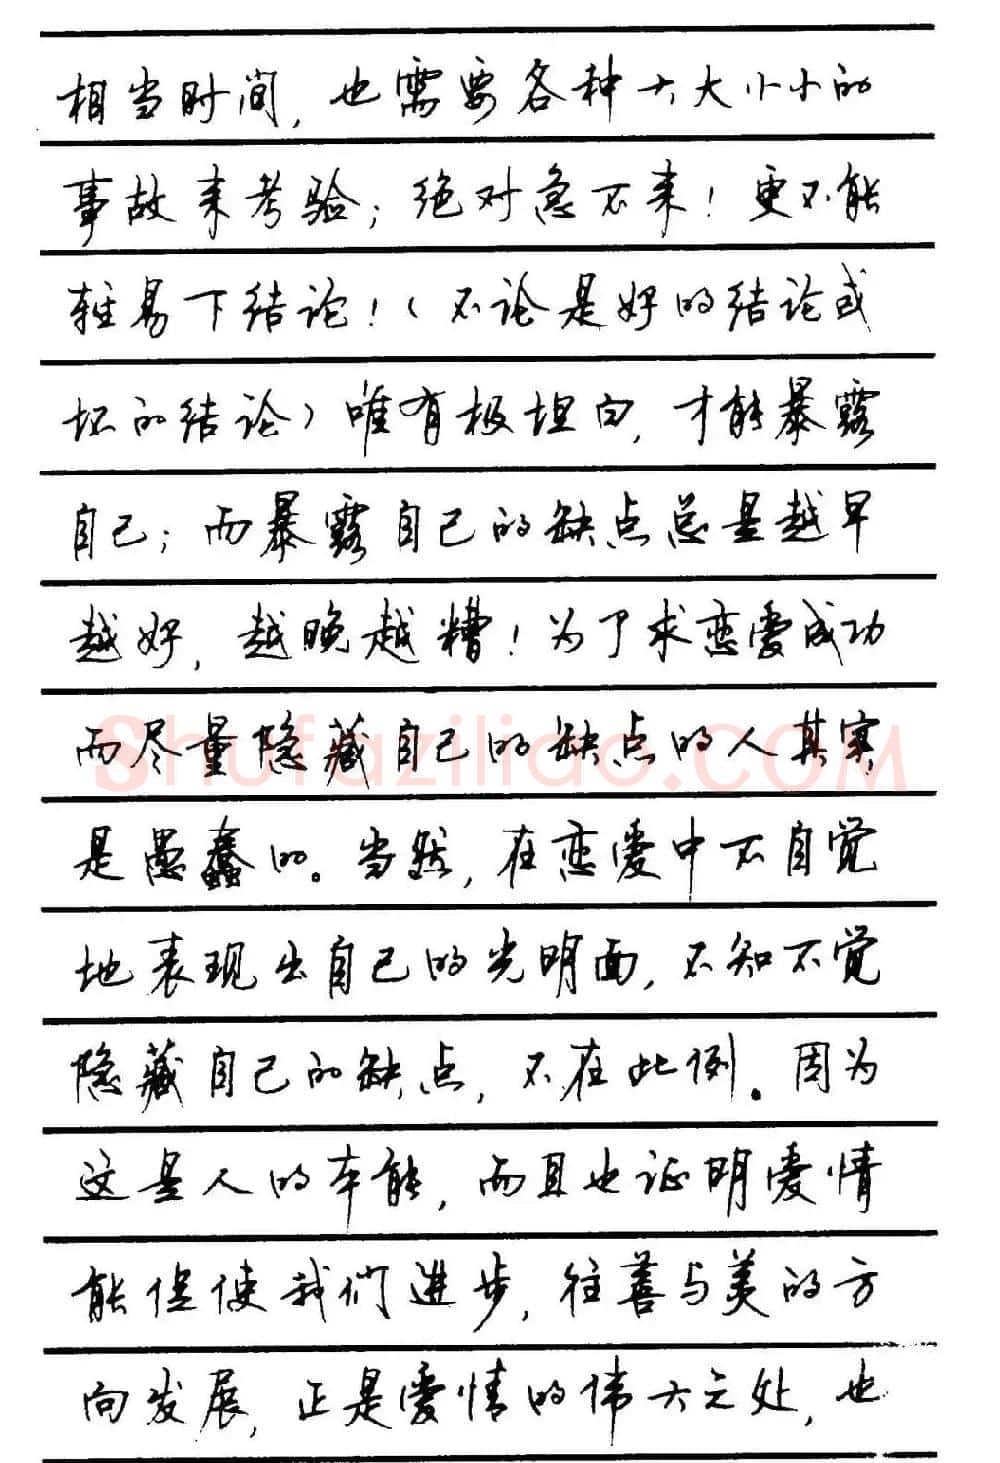 相当时间，也需要各种大大小小的
事故来考验；绝对急不来！更不能
轻易下结论！（不论是好的结论或
坏的结论）唯有极坦白，才能暴露
自己；而暴露自己的缺点总是越早
越好，越晚越糟！为了求恋爱成功
而尽量隐藏自己的缺点的人其实
是愚蠢的。当然，在恋爱中不自觉
地表现出自己的光明面，不知不觉
隐藏自己的缺点，不在此例。因为
这是人的本能，而且也证明爱情
能促使我们进步，往善与美的方
向发展，正是爱情的伟大之处，也
Shufaziliao.COM